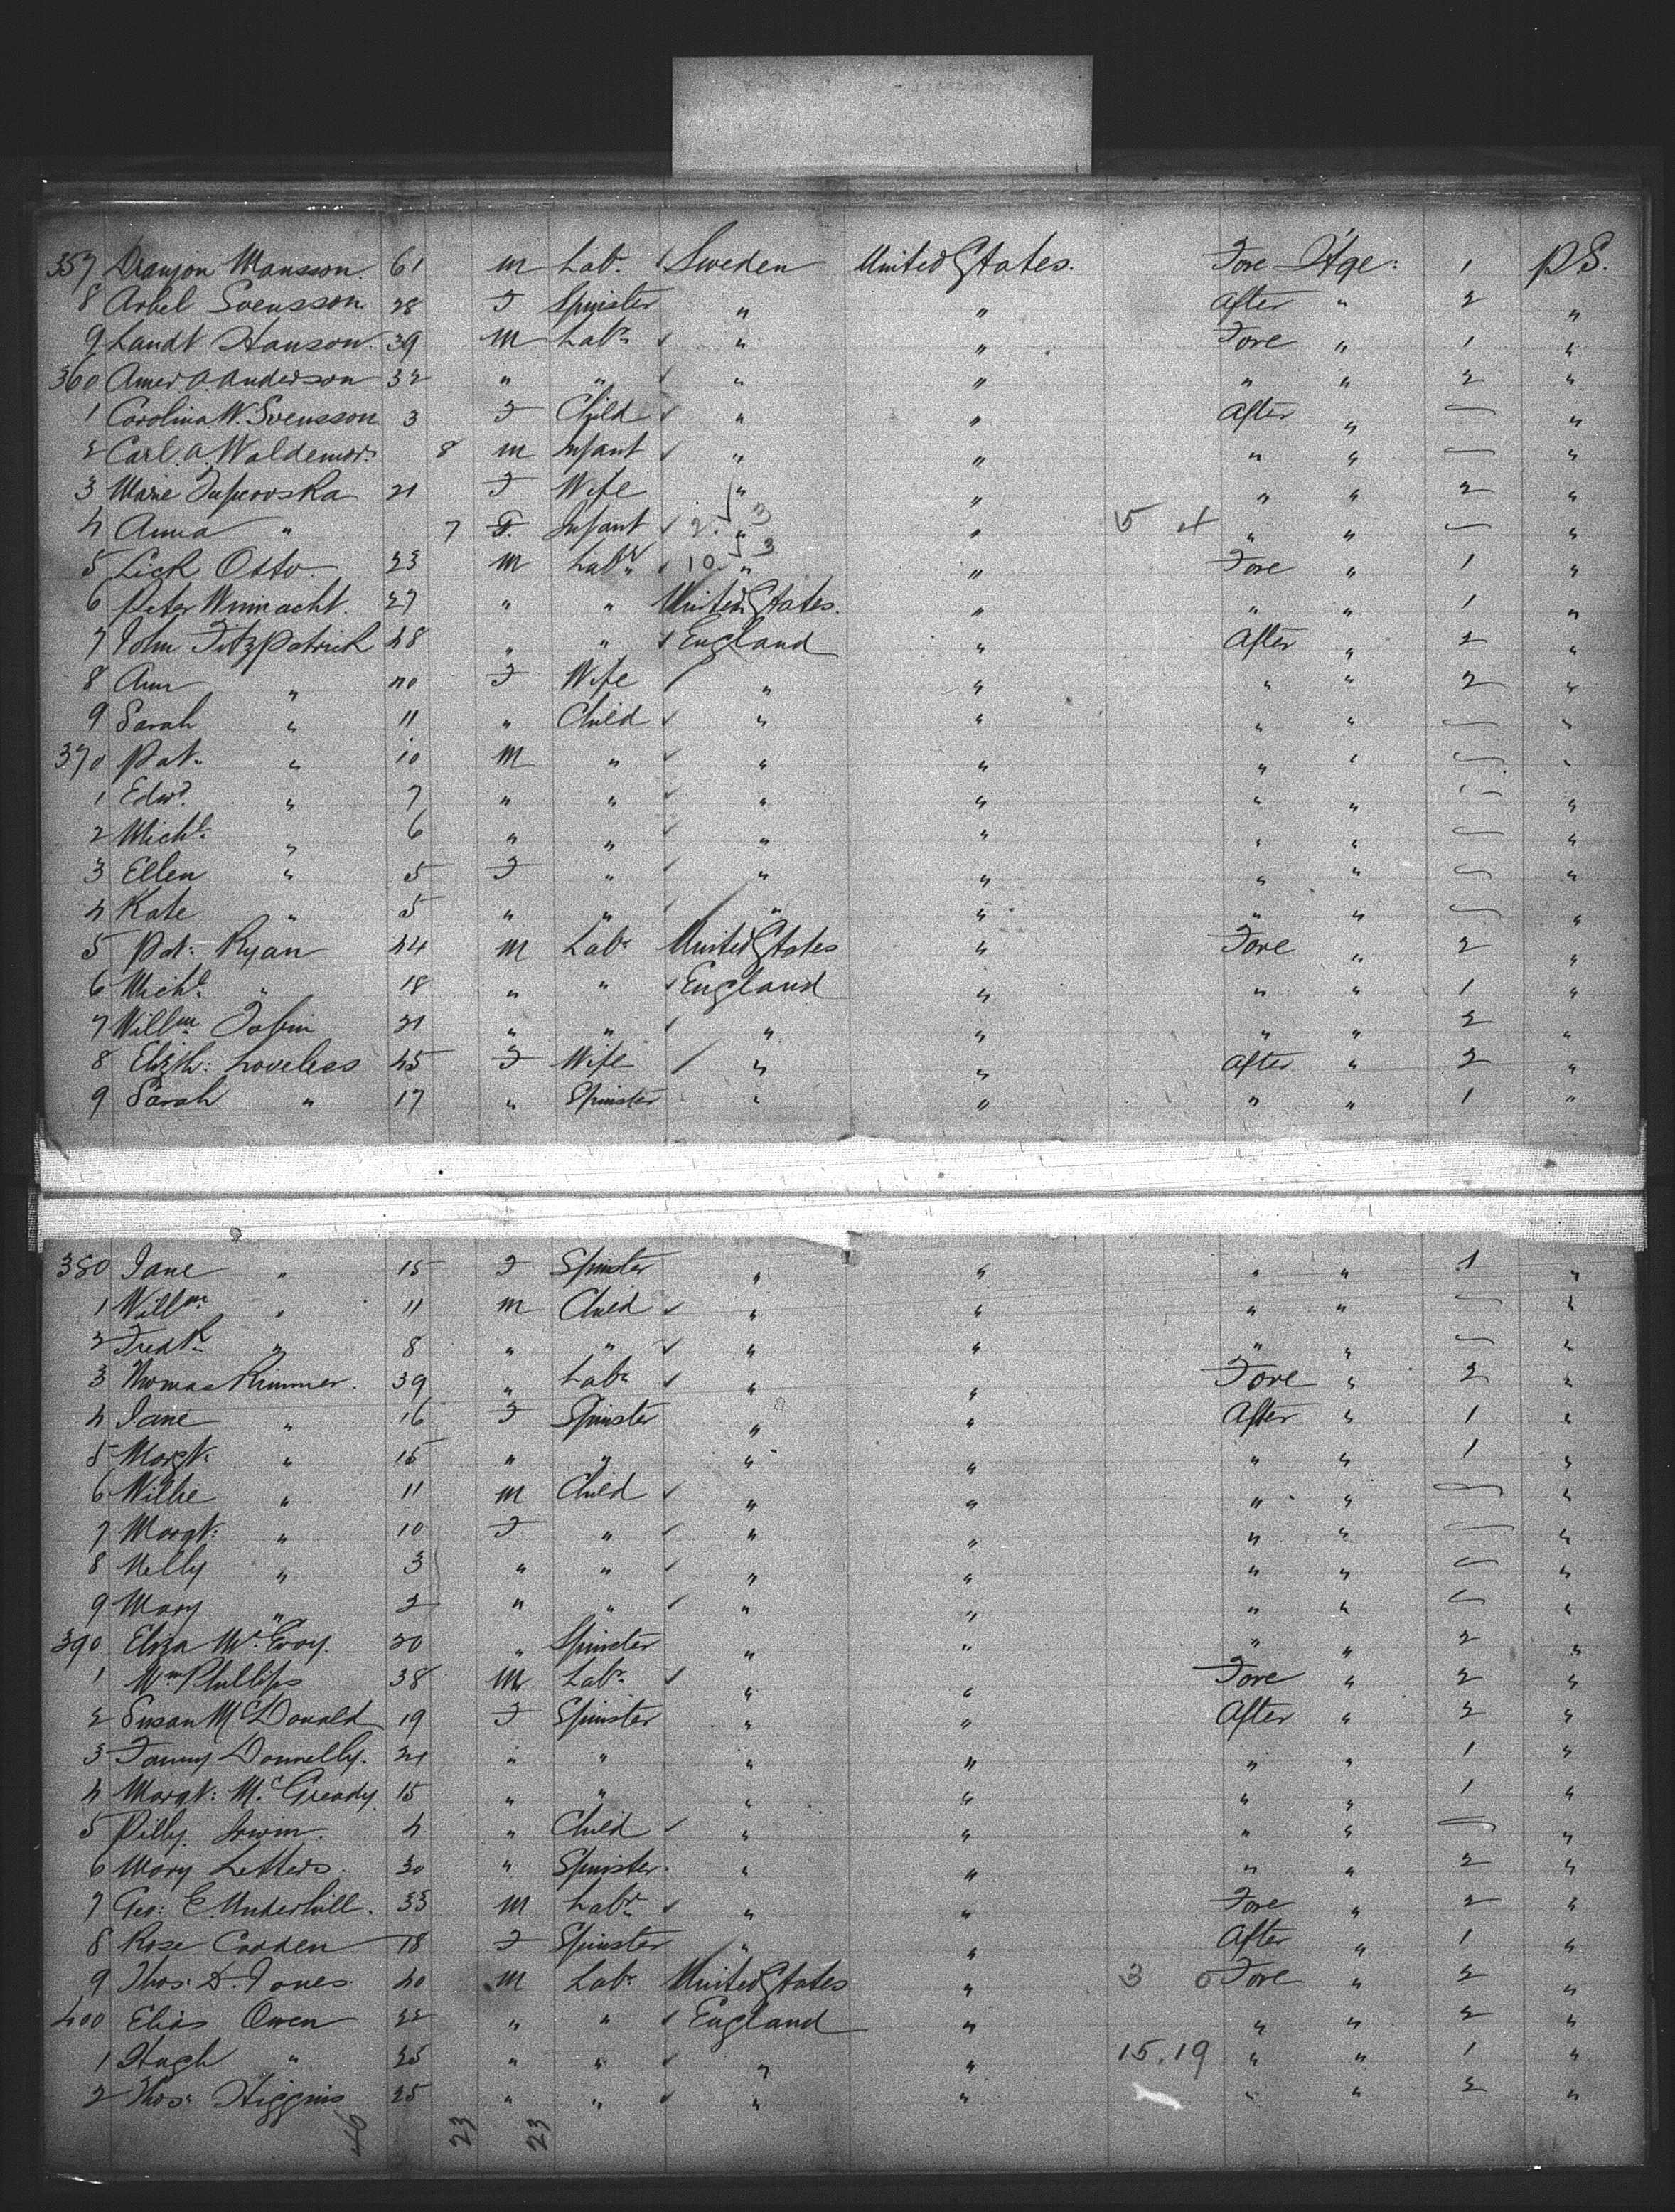 357 Mansson. 61 m Lab. ✓ Sweden United States. Fore Stge: 1 P.S.
8 Arbel Svensson 28 F Spinster " " After " 2 "
9 Landt Hanson. 39 m Labr. ✓ " " Fore " 1 "
360 Amer A. Anderson 32 " " ✓ " " " " 2 "
1 Carolina W. Svensson 3 F Child ✓ " " After " — "
2 Carl. A. Waldemar. 8 m Infant ✓ " " " " — "
3 Marie 21 F Wife " " " " 2 "
4 Anna " 7 F. Infant ✓ 2. " 3 " 5 4 " " — "
5 Lick Otto. 23 m Labr. ✓ 10 " 3 " Fore " 1 "
6 Peter Winnacht. 27 " " United States. " " " 1 "
7 John Fitzpatrick 48 " " ✓ England " After " 2 "
8 Ann " 40 F Wife ✓ " " " " 2 "
9 Sarah " 11 " Child ✓ " " " " — "
370 Pat. " 10 m " ✓ " " " " — "
1 Edwd. " 7 " " ✓ " " " " — "
2 Michl. " 6 " " ✓ " " " " — "
3 Ellen " 5 F " ✓ " " " " — "
4 Kate " 5 " " ✓ " " " " — "
5 Pat: Ryan 44 m Labr United States " Fore " 2 "
6 Michl. " 18 " " ✓ England " " " 1 "
7 Willm Tobin 21 " " ✓ " " " " 2 "
8 Elizth: Loveless 45 F Wife ✓ " " After " 2 "
9 Sarah " 17 " Spinster " " " " 1 "
380 Jane " 15 F Spinster " " " " 1 "
1 Willm. " 11 m Child ✓ " " " " — "
2 Fredk. " 8 " " ✓ " " " " — "
3 Thomas Rimmer. 39 " Labr. ✓ " " Fore " 2 "
4 Jane " 16 F Spinster " " After " 1 "
5 Margt. " 15 " " " " " " 1 "
6 Willie " 11 m Child ✓ " " " " — "
7 Margt: " 10 F " ✓ " " " " — "
8 Nelly " 3 " " ✓ " " " " — "
9 Mary " 2 " " ✓ " " " " — "
390 Eliza McEvoy. 20 " Spinster " " " " 2 "
1 Wm Phillips 38 m Labr. ✓ " " Fore " 2 "
2 Susan McDonald 19 F Spinster " " After " 2 "
3 Fanny Donnelly. 21 " " " " " " 1 "
4 Margt: McGready 15 " " " " " " 1 "
5 Pilly. Irwin. 4 " Child ✓ " " " " — "
6 Mary Letters. 30 " Spinster. " " " " 2 "
7 Geo: E. Underhill. 33 m Labr. ✓ " " Fore " 2 "
8 Rose Codden 18 F Spinster " " After " 1 "
9 Thos: D. Jones 40 m Labr. United States " 3 0 Fore " 2 "
400 Elias Owen 22 " " ✓ England " " " 2 "
1 Hugh " 25 " " ✓ " " 15.19 " " 1 "
2 Thos: Higgins 25 " " ✓ " " " " 2 "
46 23 23